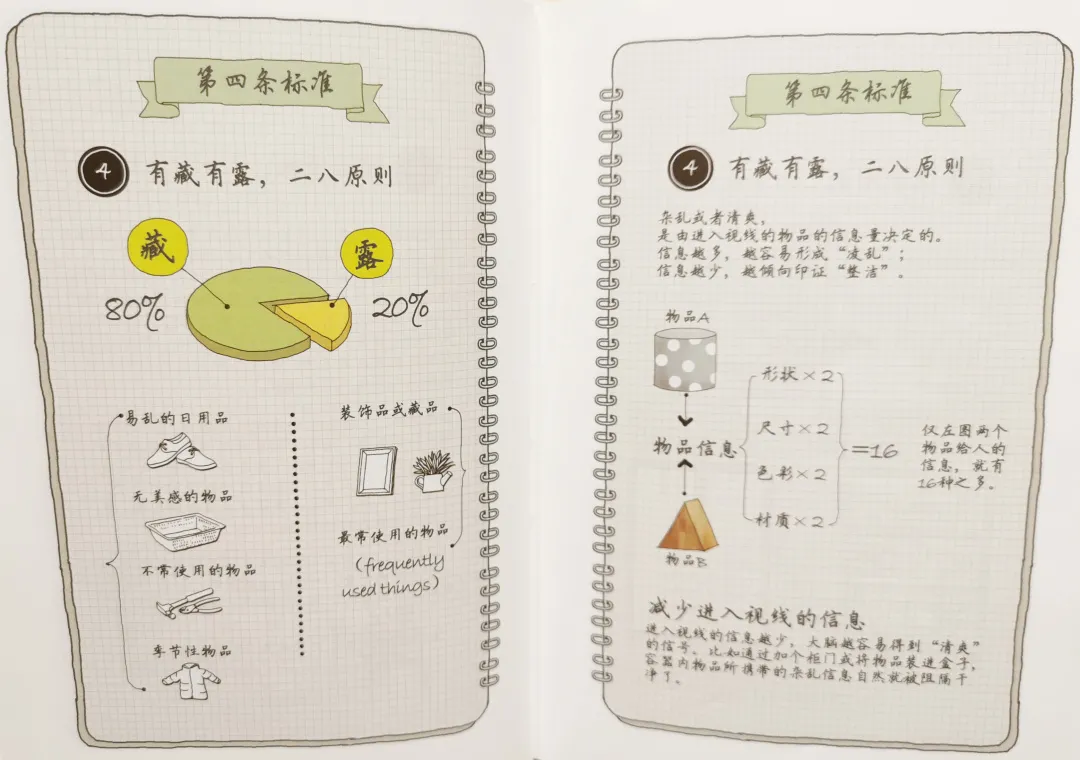 第四条标准
4
有藏有露，二八原则
藏
露
80%
20%
易乱的日用品
无美感的物品
不常使用的物品
季节性物品
装饰品或藏品
最常使用的物品
(frequently
used things)
第四条标准
4
有藏有露，二八原则
杂乱或者清爽，
是由进入视线的物品的信息量决定的。
信息越多，越容易形成“凌乱”；
信息越少，越倾向印证“整洁”。
物品A
物品信息
物品B
形状×2
尺寸×2
色彩×2
材质×2
=16
仅左图两个
物品给人的
信息，就有
16种之多。
减少进入视线的信息
进入视线的信息越少，大脑越容易得到“清爽”
的信号。比如通过加个柜门或将物品装进盒子，
容器内物品所携带的杂乱信息自然就被阻隔干
净了。